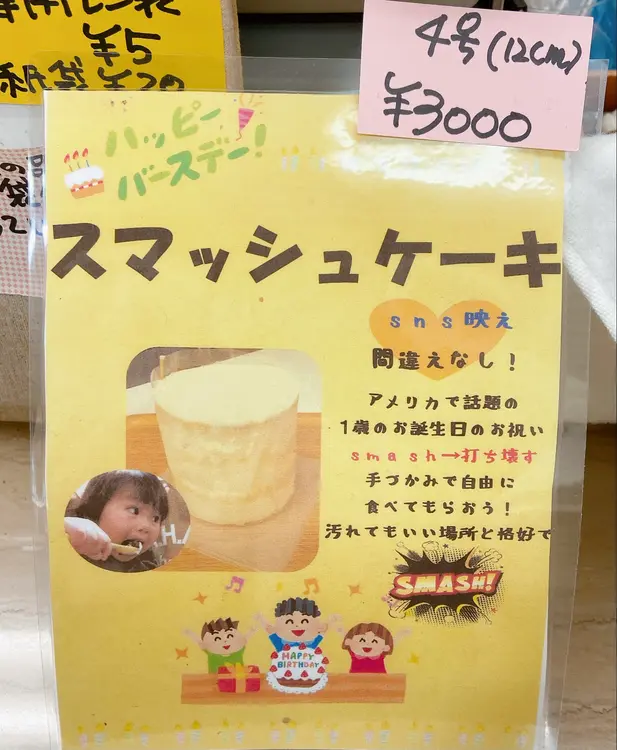 ¥5
紙袋 ¥20
4号(12cm)
¥3000
ハッピー
バースデー!
スマッシュケーキ
sns映え
間違えなし!
アメリカで話題の
1歳のお誕生日のお祝い
smash→打ち壊す
手づかみで自由に
食べてもらおう!
汚れてもいい場所と格好で
SMASH!
HAPPY
BIRTHDAY